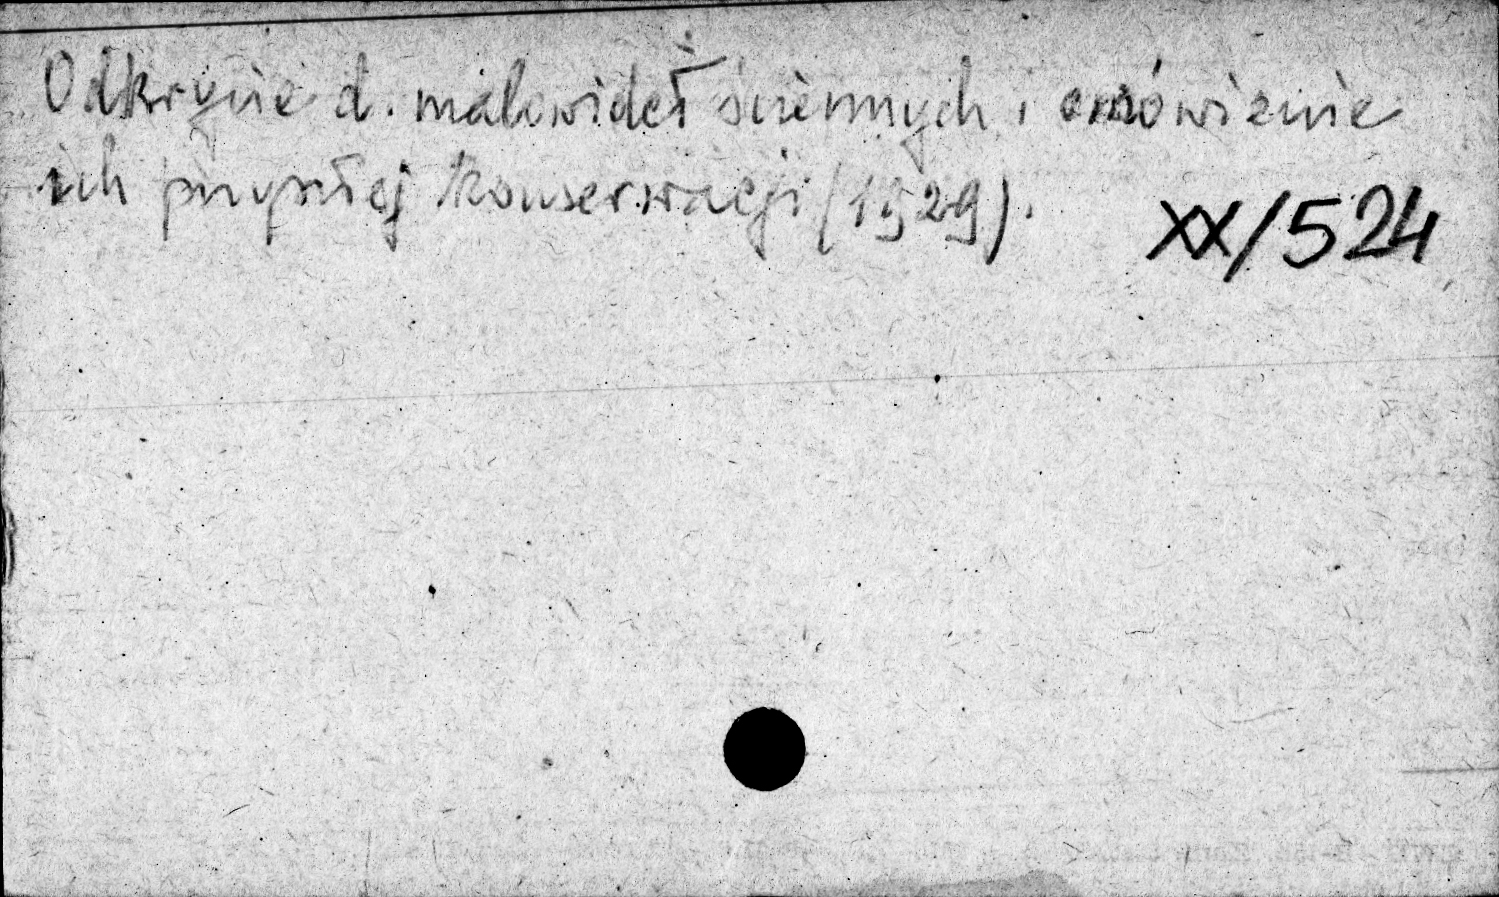 Odkrycie d. malowideł ściennych i omówienie
ich przyszłej konserwacji (1929).
XX/524